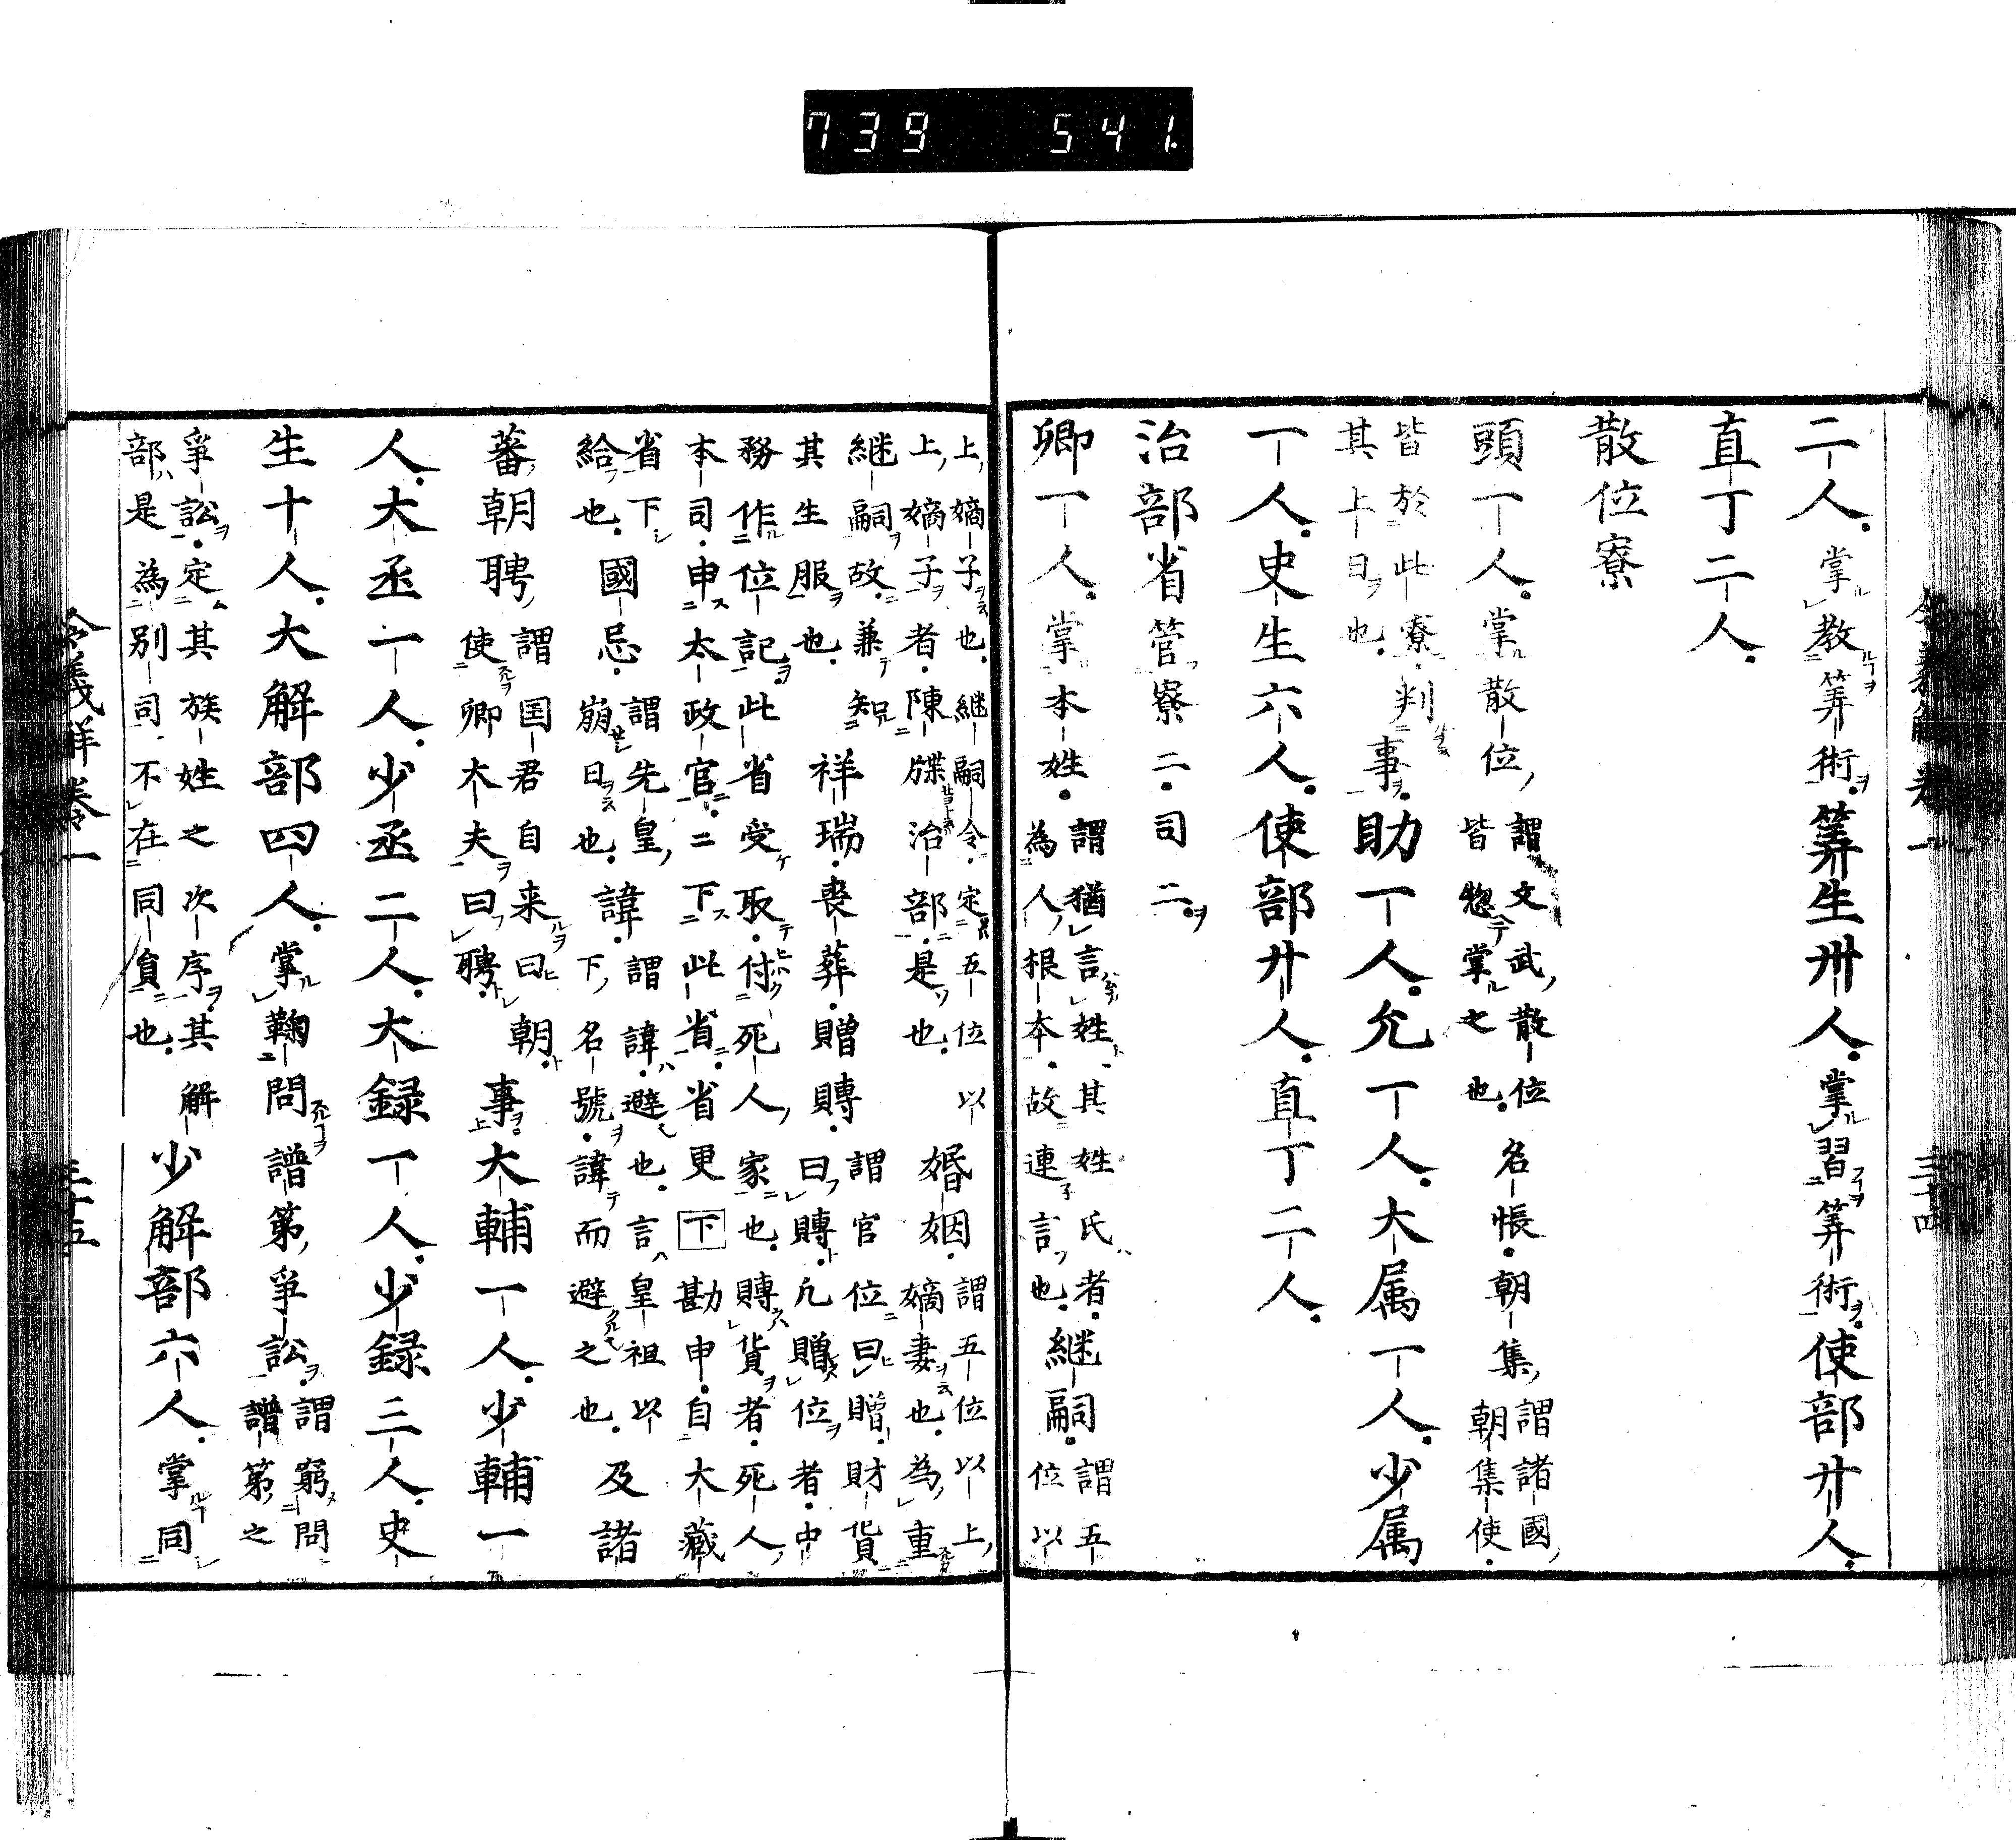 739 541.
二人。掌教筭術。筭生卅人。掌習筭術。使部廿人。
直丁二人。
散位寮
頭一人。掌散位、謂文武、散位皆惣掌之也。名帳。朝集、謂諸國、朝集使。
皆於此寮。判其上日也。事。助一人。允一人。大属一人。少属
一人。史生六人。使部廿人。直丁二人。
治部省管寮二。司二。
卿一人。掌本姓。謂猶言姓、其姓氏者。為人、根本。故連言也。継嗣。謂五位以
上、嫡子也。継嗣令。定五位以上、嫡子者。陳牒治部。是也。婚姻。謂五位以上、嫡妻也。為重
継嗣故。兼知其生服也。祥瑞。喪葬。贈賻。謂官位曰贈。財貨曰賻。凡贈位者。中
務作位記。此省受取。付死人、家也。賻貨者。死人、
本司。申太政官。二下此省。省更下勘申。自大藏
省下給也。國忌。謂先皇、崩日也。諱。謂諱。避也。言皇祖以下、名號。諱而避之也。及諸
蕃朝聘、謂国君自来曰朝。使卿大夫曰聘。事。大輔一人。少輔一
人。大丞一人。少丞二人。大録一人。少録三人。史
生十人。大解部四人。掌鞠問譜第、爭訟。謂窮問譜第、之
爭訟。定其族姓之次序。其解部。是為別司。不在同員也。少解部六人。掌同
令義解卷一 三十五